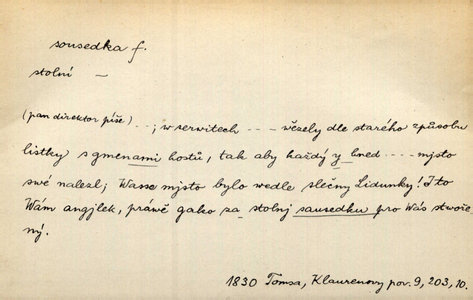 sousedka f.
stolní —
(pan direktor píše) ...; w serwitech --- wězely dle starého způsobu
listky s gmenami hostů, tak aby každý y hned .... mjsto
swé nalezl; Wasse mjsto bylo wedle slečny Lidunky! I to
Wám angjlek, práwě gako za stolnj sausedku pro Wás stwoře
ný.
1830 Tomsa, Klaurenowy pov. 9, 203, 10.